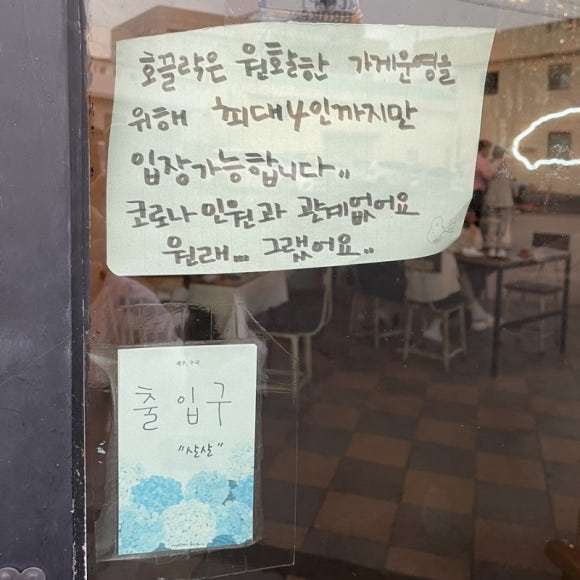 호끌락은 원활한 가게운영을
위해 최대4인까지만
입장가능합니다..
코로나 인원과 관계없어요
원래... 그랬어요..
제주, 수국
출입구
"살살"